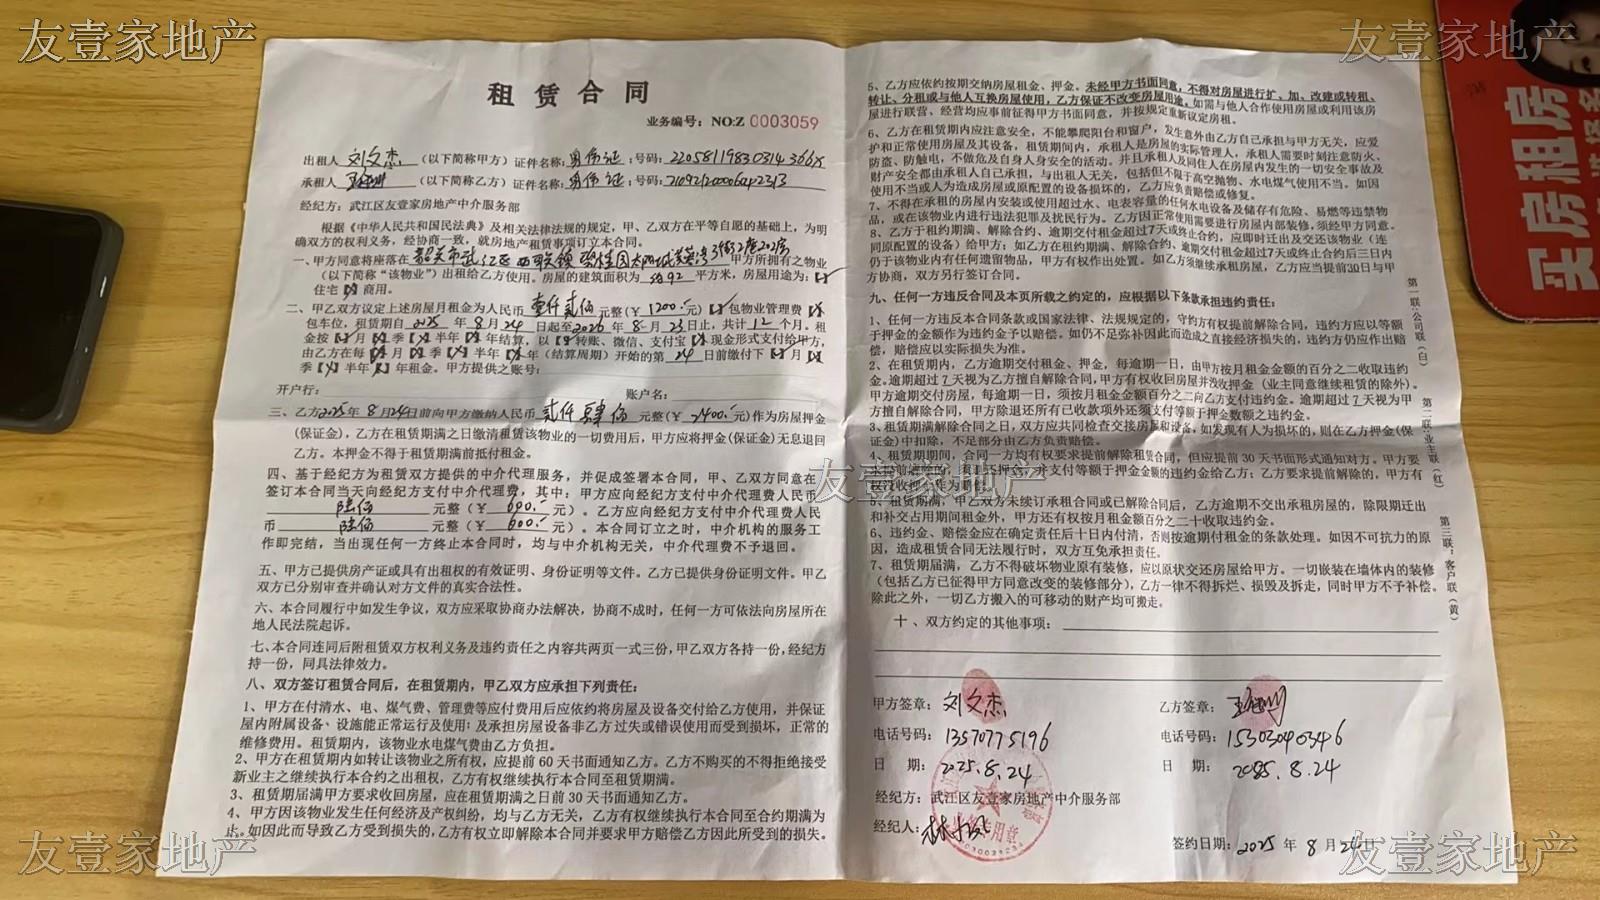 友壹家地产
友壹家地产
租赁合同
业务编号：NO:Z 0003059
出租人 刘文杰 （以下简称甲方）证件名称：身份证 ；号码：
承租人 （以下简称乙方）证件名称：身份证 ；号码：
经纪方：武江区友壹家房地产中介服务部
根据《中华人民共和国民法典》及相关法律法规的规定，甲、乙双方在平等自愿的基础上，为明
确双方的权利义务，经协商一致，就房地产租赁事项订立本合同。
一、甲方同意将座落在 韶关市武江区西联镇 甲方所拥有之物业
（以下简称“该物业”）出租给乙方使用。房屋的建筑面积为 约92 平方米，房屋用途为：【✓】
住宅【×】商用。
二、甲乙双方议定上述房屋月租金为人民币 壹仟贰佰 元整（￥ 1200.- 元）【✓】包物业管理费【×】
包车位，租赁期自 2025 年 8 月 24 日起至 2026 年 8 月 23 日止，共计 12 个月。租
金按【 】月【×】季【×】半年【×】年结算，以【 】转账、微信、支付宝【 】现金形式支付给甲方，
由乙方在每【 】月【×】季【×】半年【×】年（结算周期）开始的第 24 日前缴付下【 】月【×】
季【×】半年【×】年租金。甲方提供之账号：
开户行： 账户名：
三、乙方2025年 8 月24日前向甲方缴纳人民币 贰仟肆佰 元整（￥ 2400.- 元）作为房屋押金
（保证金），乙方在租赁期满之日缴清租赁该物业的一切费用后，甲方应将押金（保证金）无息退回
乙方。本押金不得于租赁期满前抵付租金。
四、基于经纪方为租赁双方提供的中介代理服务，并促成签署本合同，甲、乙双方同意在
签订本合同当天向经纪方支付中介代理费，其中：甲方应向经纪方支付中介代理费人民币
陆佰 元整（￥ 600.- 元）。乙方应向经纪方支付中介代理费人民
币 陆佰 元整（￥ 600.- 元）。本合同订立之时，中介机构的服务工
作即完结，当出现任何一方终止本合同时，均与中介机构无关，中介代理费不予退回。
五、甲方已提供房产证或具有出租权的有效证明、身份证明等文件。乙方已提供身份证明文件。甲乙
双方已分别审查并确认对方文件的真实合法性。
六、本合同履行中如发生争议，双方应采取协商办法解决，协商不成时，任何一方可依法向房屋所在
地人民法院起诉。
七、本合同连同后附租赁双方权利义务及违约责任之内容共两页一式三份，甲乙双方各持一份，经纪方
持一份，同具法律效力。
八、双方签订租赁合同后，在租赁期内，甲乙双方应承担下列责任：
1、甲方在付清水、电、煤气费、管理费等应付费用后应依约将房屋及设备交付给乙方使用，并保证
屋内附属设备、设施能正常运行及使用；及承担房屋设备非乙方过失或错误使用而受到损坏，正常的
维修费用。租赁期内，该物业水电煤气费由乙方负担。
2、甲方在租赁期内如转让该物业之所有权，应提前60天书面通知乙方。乙方不购买的不得拒绝接受
新业主之继续执行本合约之出租权，乙方有权继续执行本合同至租赁期满。
3、租赁期届满甲方要求收回房屋，应在租赁期满之日前30天书面通知乙方。
4、甲方因该物业发生任何经济及产权纠纷，均与乙方无关，乙方有权继续执行本合同至合约期满为
止。如因此而导致乙方受到损失的，乙方有权立即解除本合同并要求甲方赔偿乙方因此所受到的损失。
5、乙方应依约按期交纳房屋租金、押金。未经甲方书面同意，不得对房屋进行扩、加、改建或转租、
转让、分租或与他人互换房屋使用，乙方保证不改变房屋用途，如需与他人合作使用房屋或利用该房
屋进行联营、经营均应事前征得甲方书面同意，并按规定重新议定房租。
6、乙方在租赁期内应注意安全，不能攀爬阳台和窗户，发生意外由乙方自己承担与甲方无关，应爱
护和正常使用房屋及其设备，租赁期间内，承租人是房屋的实际管理人，承租人需要时刻注意防火、
防盗、防触电，不做危及自身人身安全的活动。并且承租人及同住人在房屋内发生的一切安全事故及
财产安全都由承租人自己承担，与出租人无关，包括但不限于高空抛物、水电煤气使用不当。如因
使用不当或人为造成房屋或原配置的设备损坏的，乙方应负责赔偿或修复。
7、不得在承租的房屋内安装或使用超过水、电表容量的任何水电设备及储存有危险、易燃等违禁物
品，或在该物业内进行违法犯罪及扰民行为。乙方因正常使用需要进行房屋内部装修，须经甲方同意。
8、乙方于租约期满、解除合约、逾期交付租金超过7天或终止合约，应即时迁出及交还该物业（连
同原配置的设备）给甲方；如乙方在租约期满、解除合约、逾期交付租金超过7天或终止合约后三日内
仍于该物业内有任何遗留物品，甲方有权作出处置。如乙方须继续承租房屋，乙方应当提前30日与甲
方协商，双方另行签订合同。
九、任何一方违反合同及本页所载之约定的，应根据以下条款承担违约责任：
1、任何一方违反本合同条款或国家法律、法规规定的，守约方有权提前解除合同，违约方应以等额
于押金的金额作为违约金予以赔偿。如仍不足弥补因此而造成之直接经济损失的，违约方仍应作出赔
偿，赔偿应以实际损失为准。
2、在租赁期内，乙方逾期交付租金、押金，每逾期一日，由甲方按月租金金额的百分之二收取违约
金。逾期超过7天视为乙方擅自解除合同，甲方有权收回房屋并没收押金（业主同意继续租赁的除外）。
甲方逾期交付房屋，每逾期一日，须按月租金金额百分之二向乙方支付违约金。逾期超过7天视为甲
方擅自解除合同，甲方除退还所有已收款项外还须支付等额于押金数额之违约金。
3、租赁期满解除合同之日，双方应共同检查交接房屋和设备，如发现有人为损坏的，则在乙方押金（保
证金）中扣除，不足部分由乙方负责赔偿。
4、租赁期期间，合同一方均有权要求提前解除租赁合同，但应提前30天书面形式通知对方。甲方要
求提前解除的，须退还押金，并支付等额于押金金额的违约金给乙方；乙方要求提前解除的，甲方有
权没收押金作为赔偿。
友壹家地产
5、租赁期满，甲乙双方未续订承租合同或已解除合同后，乙方逾期不交出承租房屋的，除限期迁出
和补交占用期间租金外，甲方还有权按月租金额百分之二十收取违约金。
6、违约金、赔偿金应在确定责任后十日内付清，否则按逾期付租金的条款处理。如因不可抗力的原
因，造成租赁合同无法履行时，双方互免承担责任。
7、租赁期届满，乙方不得破坏物业原有装修，应以原状交还房屋给甲方。一切嵌装在墙体内的装修
（包括乙方已征得甲方同意改变的装修部分），乙方一律不得拆烂、损毁及拆走，同时甲方不予补偿。
除此之外，一切乙方搬入的可移动的财产均可搬走。
十、双方约定的其他事项：
甲方签章： 刘文杰
电话号码：13570775196
日 期： 2025.8.24
经纪方：武江区友壹家房地产中介服务部
经纪人：
乙方签章：
电话号码：15303040346
日 期： 2025.8.24
签约日期：2025 年 8 月 24 日
第一联：公司联（白）
第二联：业主联（红）
第三联：客户联（黄）
买房租房
友壹家地产
友壹家地产